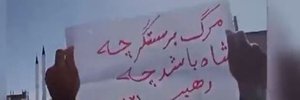 مرگ بر ستمگر چه
شاه باشد چه
رهبر